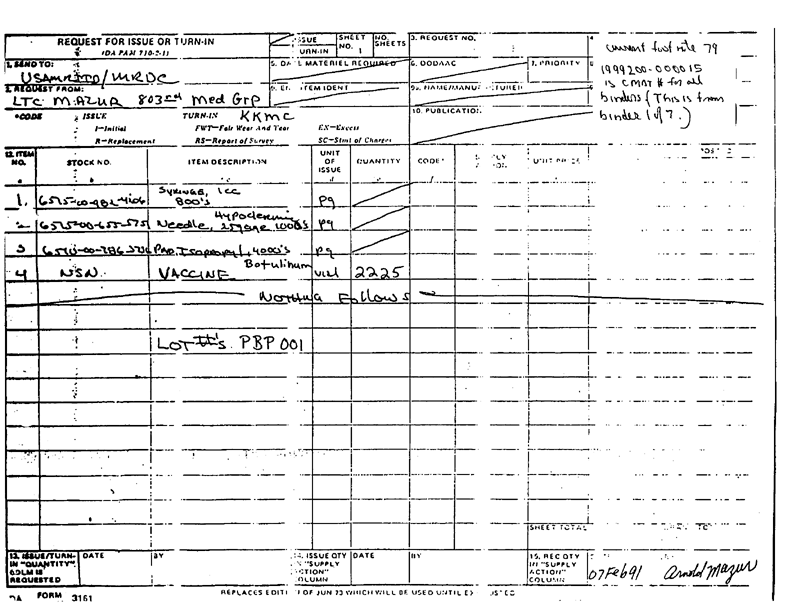 REQUEST FOR ISSUE OR TURN-IN
(DA PAM 710-2-1)
ISSUE
TURN-IN
SHEET NO. 1
NO. SHEETS
3. REQUEST NO.
current foot note 79
1999200-0000015
is CMAT # for all
binders (This is from
binder 1 of 7.)
1. SEND TO:
USAMRIID/MRDC
5. DATE MATERIEL REQUIRED
6. DODAAC
7. PRIORITY
2. REQUEST FROM:
LTC MAZUR 803rd Med Grp
KKMC
10. PUBLICATION
*CODE ISSUE TURN-IN
I—Initial FWT—Fair Wear And Tear EX—Excess
R—Replacement RS—Report of Survey SC—Stmt of Charges
12. ITEM NO.
STOCK NO.
ITEM DESCRIPTION
UNIT OF ISSUE
QUANTITY
CODE*
UNIT PRICE
1. Syringe, 1cc 800's pg
2 Needle, Hypodermic 25gage 1000's pg
3 Pad, Isopropyl, 4000's pg
4 NSN VACCINE Botulinum vial 2225
Nothing Follows
LOT #'s PBP 001
SHEET TOTAL
13. ISSUE/TURN-IN "QUANTITY" COLM IS REQUESTED
DATE
BY
14. ISSUE QTY IN "SUPPLY ACTION" COLUMN
DATE
BY
15. REC QTY IN "SUPPLY ACTION" COLUMN
07Feb91 Arnold Mazur
DA FORM 3161
REPLACES EDITION OF JUN 73 WHICH WILL BE USED UNTIL EXHAUSTED